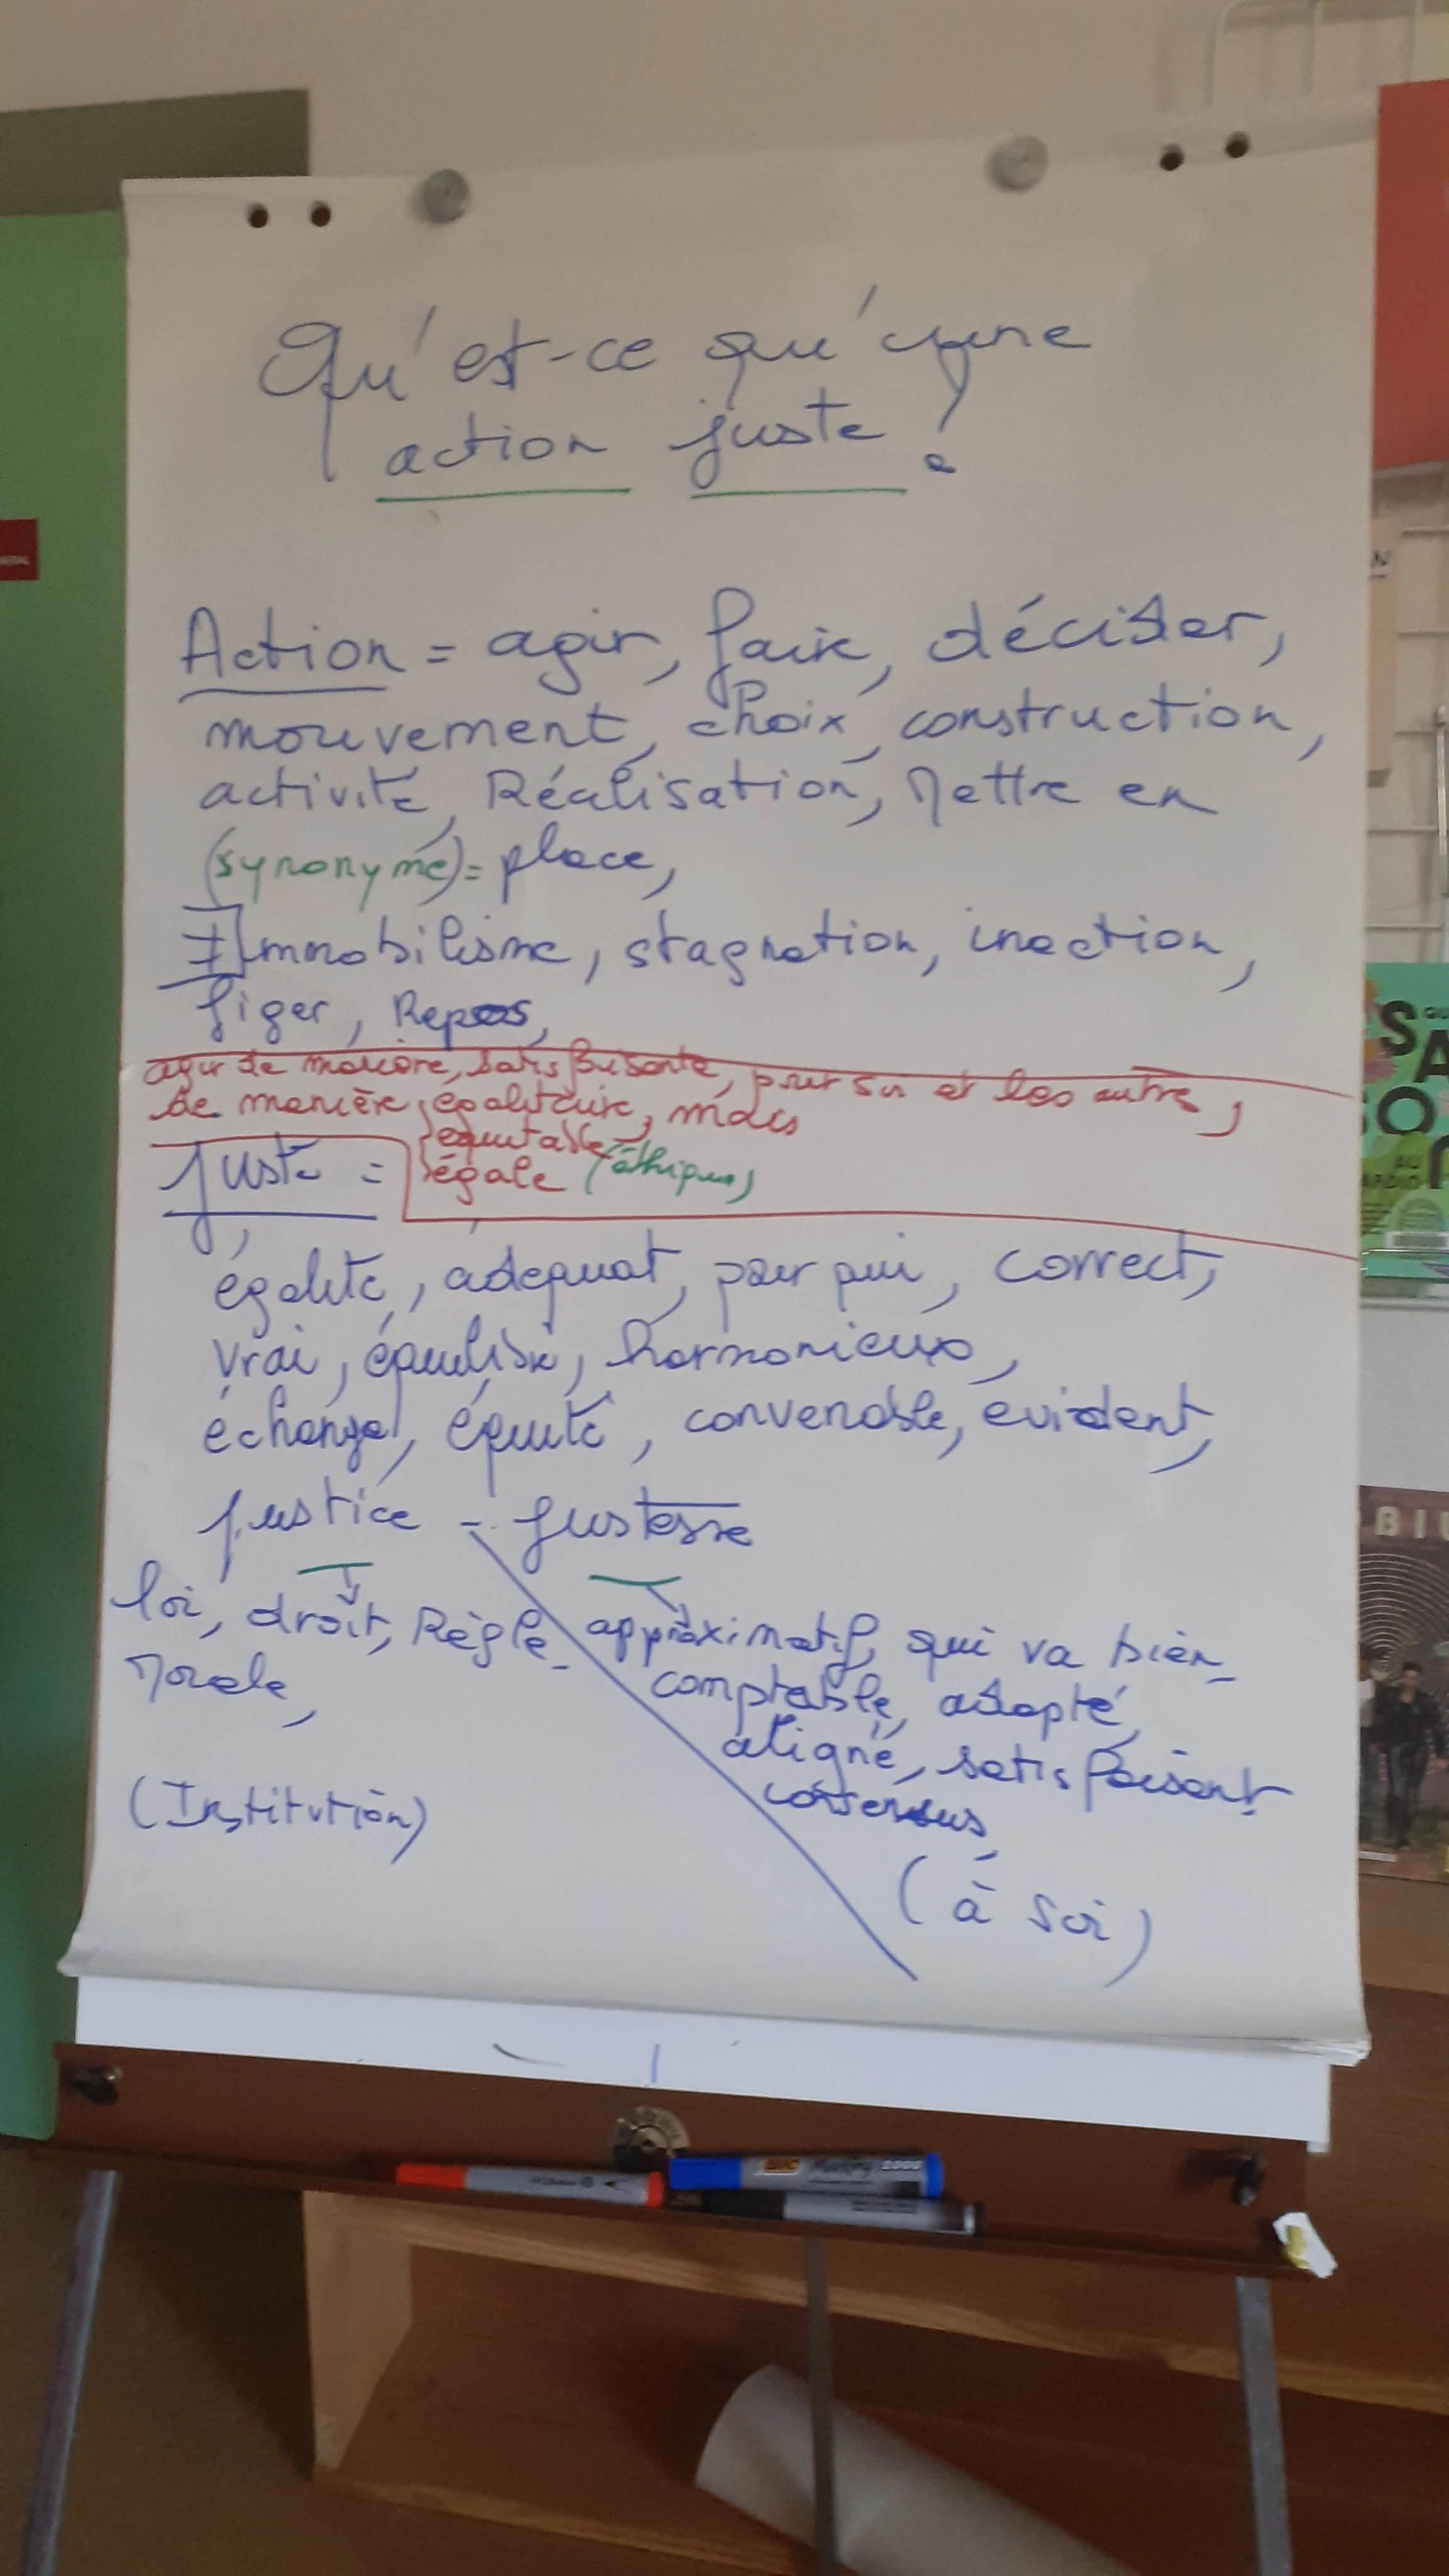 Qu'est-ce qu'une
action juste?
Action = agir, faire, décider,
mouvement, choix, construction,
activité, Réalisation, Mettre en
(synonyme) = place,
≠ Immobilisme, stagnation, inaction,
figer, Repos,
agir de manière, satisfaisante, pour soi et les autres,
de manière, égalitaire, mais
équitable
Juste = égale (éthique)
égalité, adéquat, pour qui, correct,
vrai, équilibré, harmonieux,
échange, équité, convenable, evident,
justice - justesse
loi, droit, Règle
approximatif, qui va bien
Morale,
comptable, adapté,
aligné, satisfaisant
consensus,
(Institution)
(à soi)
SA
SO
AU
BIC
2000